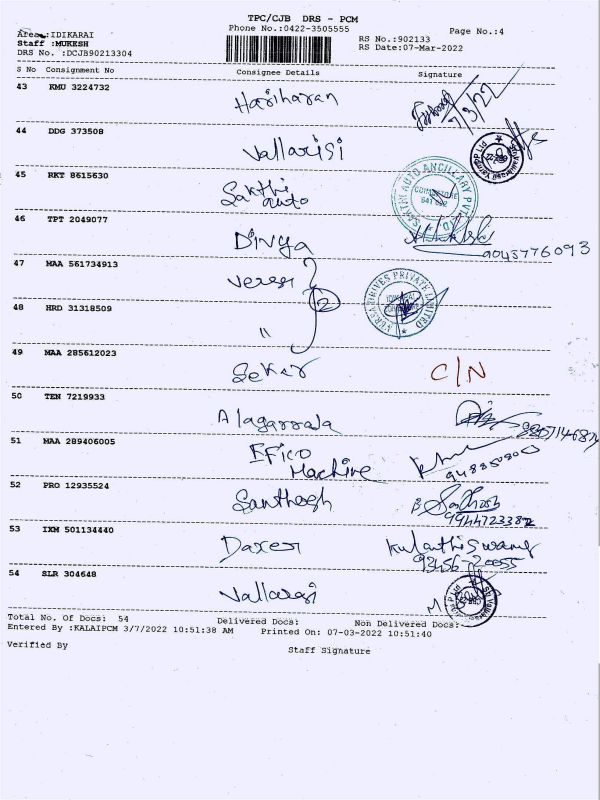 TPC/CJB DRS - PCM
Phone No.:0422-3505555
Page No.:4
Area :IDIKARAI
Staff :MUKESH
DRS No. :DCJB90213304
RS No.:902133
RS Date:07-Mar-2022
S No Consignment No Consignee Details Signature
43 KMU 3224732 Hariharan 7/3/22
44 DDG 373508 Vallarisi
45 RKT 8615630 Sakthi auto
SAKTHI AUTO ANCILLARY PVT LTD
46 TPT 2049077 Divya
9045776093
47 MAA 561734913 Versa 2
VERSA DRIVES PRIVATE LIMITED
48 HRD 31318509 "
49 MAA 285612023 Sekar C/N
50 TEN 7219933
51 MAA 289406005 Efico Machine
52 PRO 12935524 Santhosh B. Santhosh
9944723382
53 IXM 501134440 Daxer Kulanthiswamy
93456-20055
54 SLR 304648 Vallarasi
Total No. Of Docs: 54 Delivered Docs: Non Delivered Docs:
Entered By :KALAIPCM 3/7/2022 10:51:38 AM Printed On: 07-03-2022 10:51:40
Verified By Staff Signature